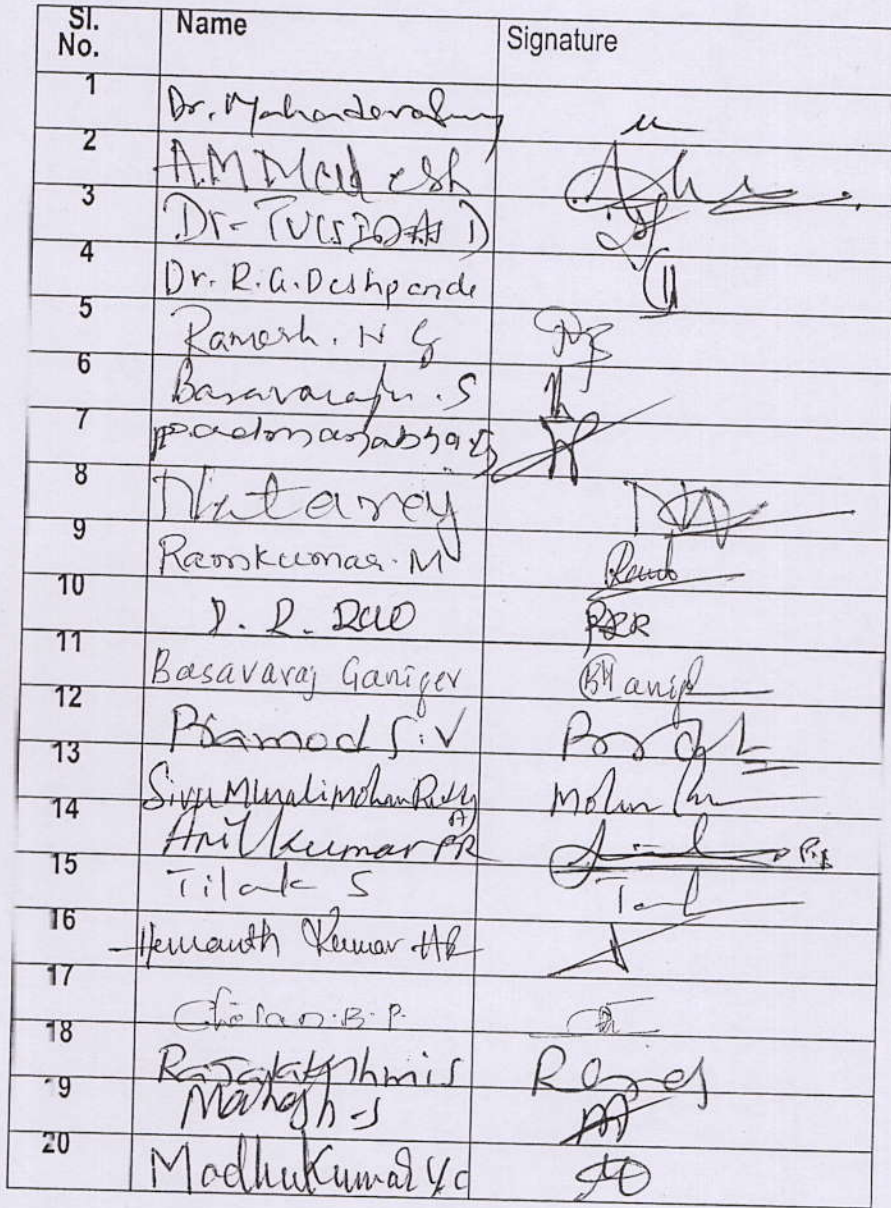 Sl. No. Name Signature
1 Dr. Mahadevaswamy
2 A.M Madesh
3 Dr- TULSIDAS D
4 Dr. R.G. Deshpande
5 Ramesh. N G
6 Basavaraju . S
7 Padmanabha
8 Nataraj
9 Ramkumar. M
10 D. R. RAO
11 Basavaraj Ganiger
12 Pramod S.V
13 Siva Murali Mohan Reddy Mohan
14 Anil Kumar PR
15 Tilak S
16 Hemanth Kumar HR
17 Chetan. B. P.
18 Rajalakshmi S
19 Mahesh -S
20 Madhu Kumar Y.C